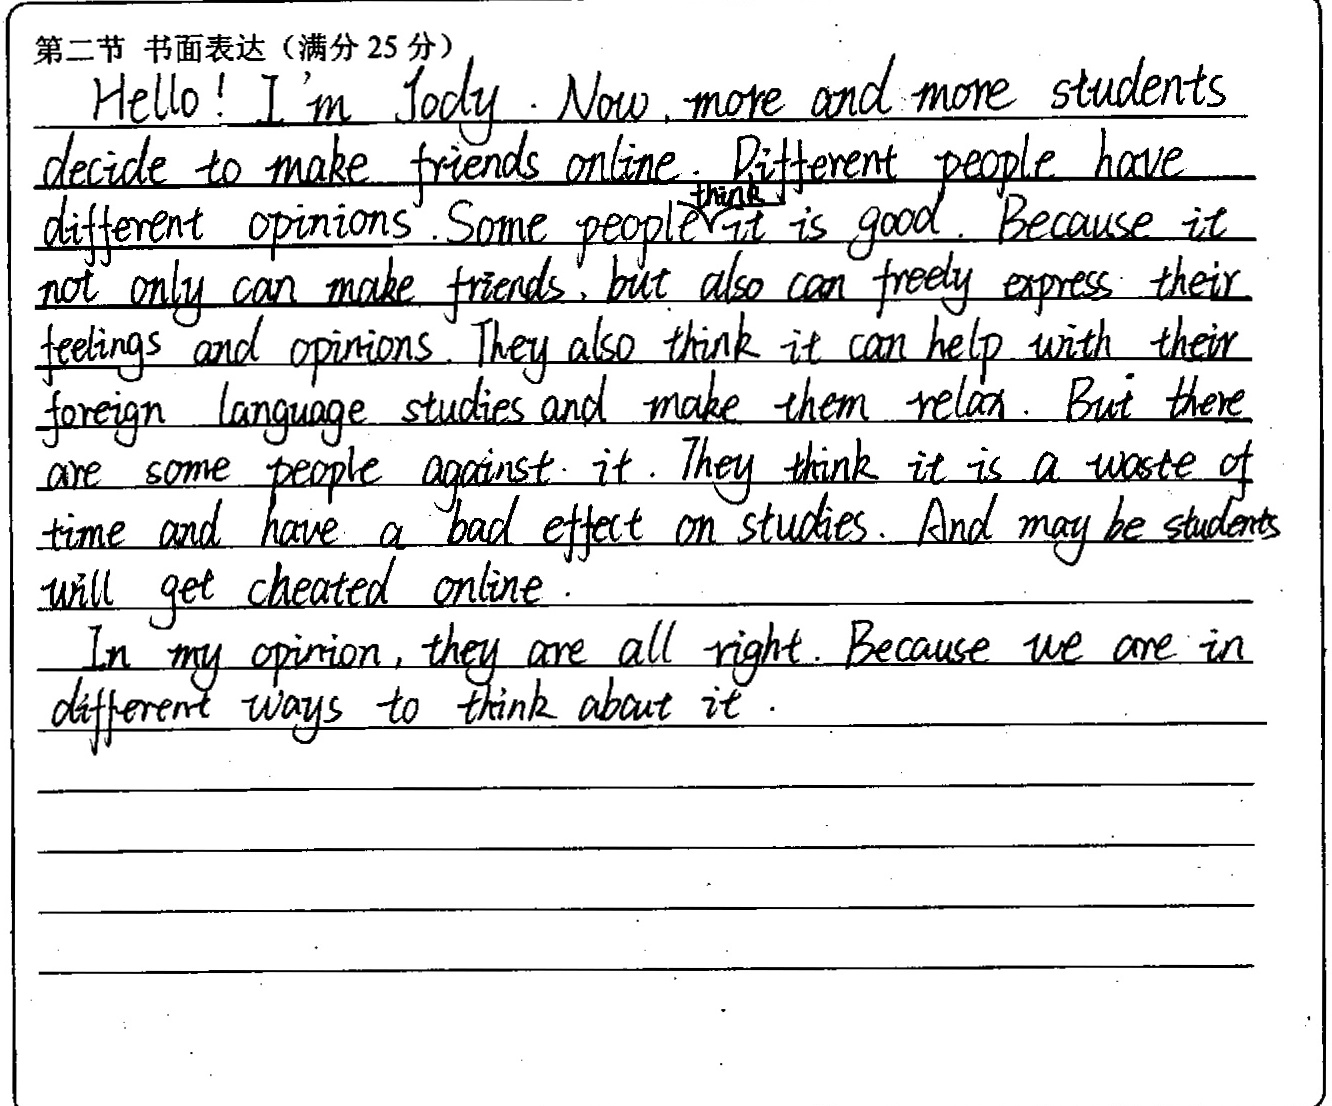 第二节 书面表达（满分 25 分）
Hello! I'm Jody. Now, more and more students
decide to make friends online. Different people have
different opinions. Some people think it is good. Because it
not only can make friends, but also can freely express their
feelings and opinions. They also think it can help with their
foreign language studies and make them relax. But there
are some people against it. They think it is a waste of
time and have a bad effect on studies. And may be students
will get cheated online.
In my opinion, they are all right. Because we are in
different ways to think about it.